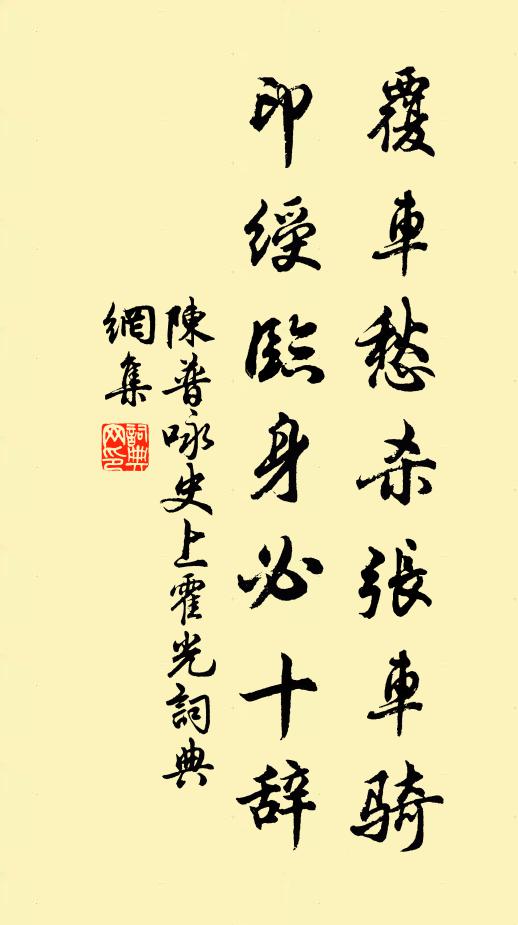 覆車愁杀張車骑
印綬臨身必十辞
陳普咏史上霍光詞典
網集
詞典
网印